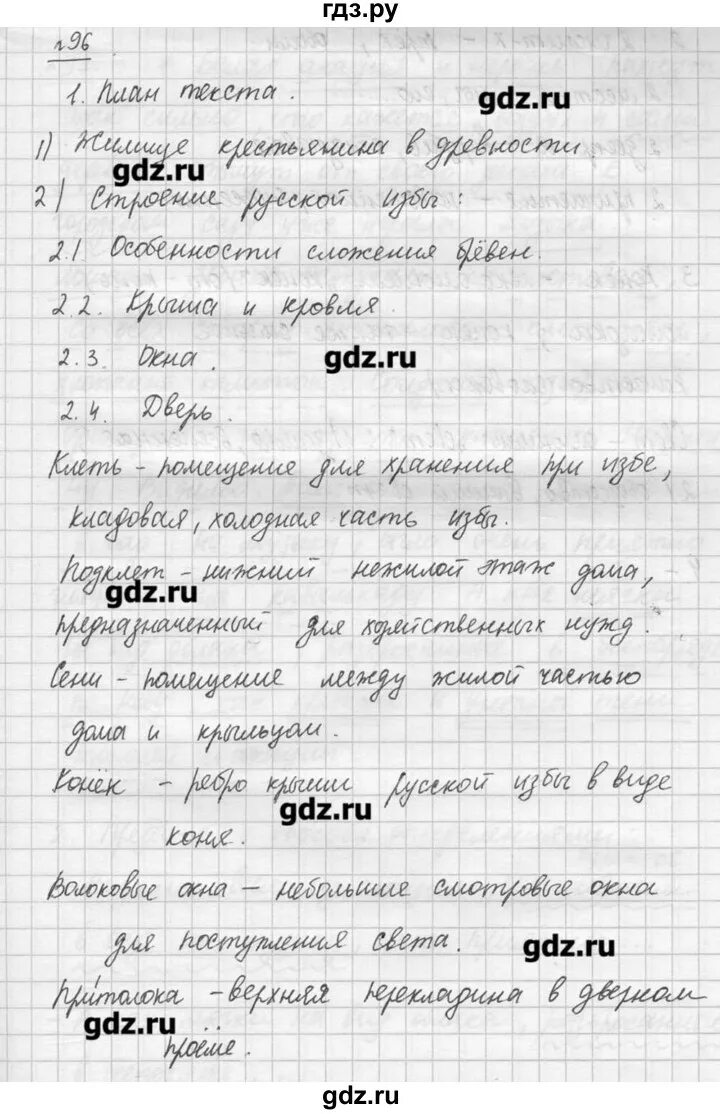 гдз.ру
№96
1. План текста.
gdz.ru
1) Жилище крестьянина в древности
gdz.ru
2) Строение русской избы:
2.1. Особенности сложения брёвен.
2.2. Крыша и кровля.
2.3. Окна.
gdz.ru
2.4. Дверь.
Клеть - помещение для хранения при избе,
кладовая, холодная часть избы.
Подклет - нижний - нежилой этаж дома, -
gdz.ru
предназначенный для хозяйственных нужд.
Сени - помещение между жилой частью
дома и крыльцом.
Конёк - ребро крыши русской избы в виде
gdz.ru
коня.
Волоковые окна - небольшие смотровые окна
для поступления света.
gdz.ru
Притолока - верхняя перекладина в дверном
gdz.ru
проёме.
gdz.ru